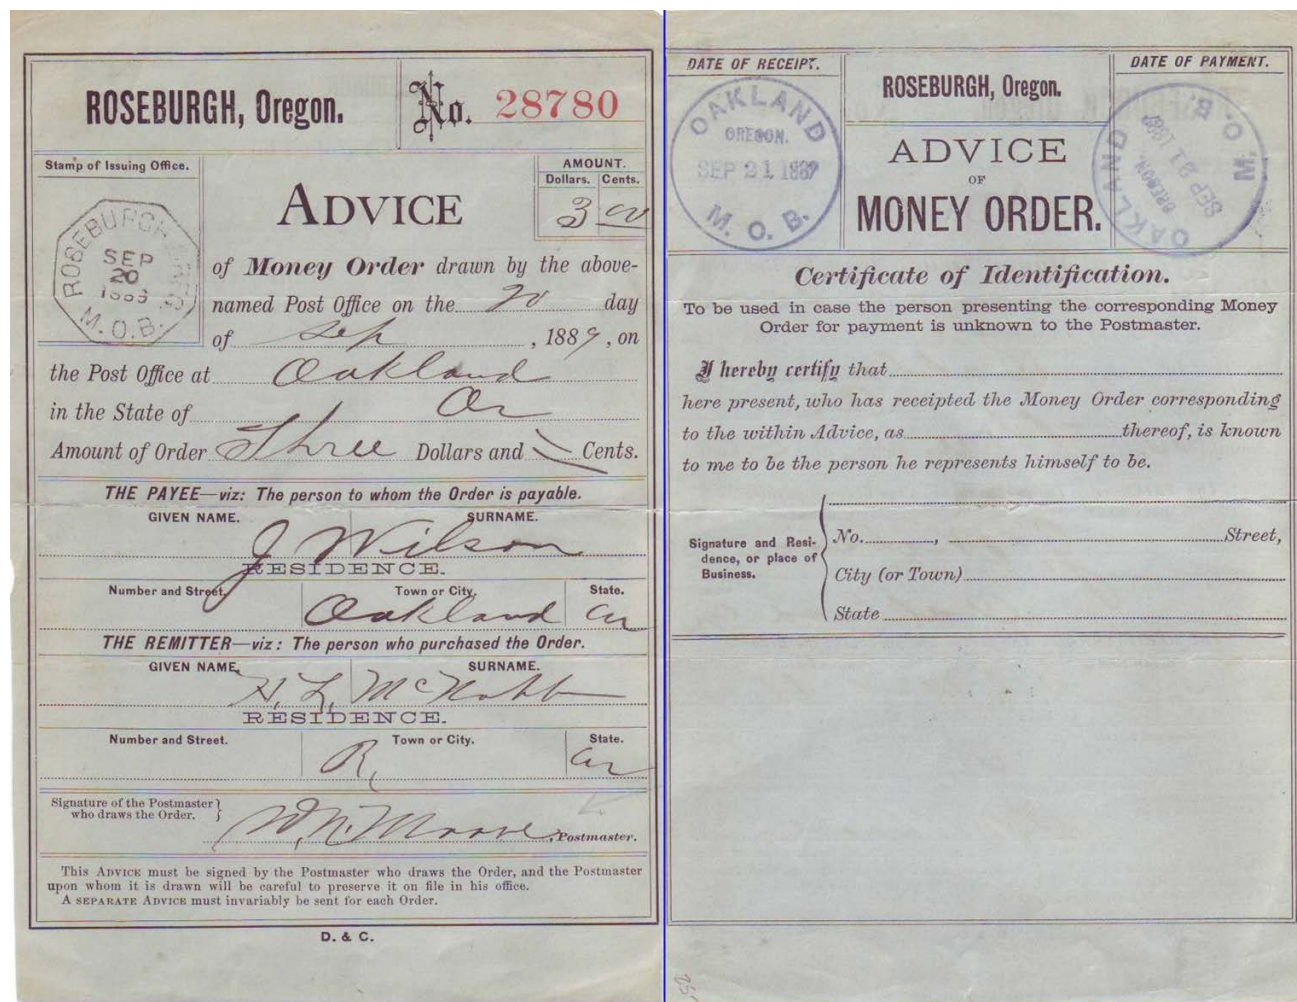 ROSEBURGH, Oregon.
No. 28780
Stamp of Issuing Office.
ROSEBURGH
SEP
20
M.O.B.
ADVICE
AMOUNT.
Dollars. Cents.
3 00
of Money Order drawn by the above-
named Post Office on the 20 day
of Sep, 1889, on
the Post Office at Oakland
in the State of Or
Amount of Order Three Dollars and Cents.
THE PAYEE—viz: The person to whom the Order is payable.
GIVEN NAME. SURNAME.
J Wilson
RESIDENCE.
Number and Street. Town or City. State.
Oakland Or
THE REMITTER—viz: The person who purchased the Order.
GIVEN NAME. SURNAME.
H. L. McNabb
RESIDENCE.
Number and Street. Town or City. State.
R, Or
Signature of the Postmaster
who draws the Order.
Moore, Postmaster.
This ADVICE must be signed by the Postmaster who draws the Order, and the Postmaster
upon whom it is drawn will be careful to preserve it on file in his office.
A SEPARATE ADVICE must invariably be sent for each Order.
D. & C.
DATE OF RECEIPT.
OAKLAND
OREGON.
SEP 21 1889
M. O. B.
ROSEBURGH, Oregon.
ADVICE
OF
MONEY ORDER.
DATE OF PAYMENT.
OAKLAND
OREGON.
SEP 21 1889
M. O. B.
Certificate of Identification.
To be used in case the person presenting the corresponding Money
Order for payment is unknown to the Postmaster.
I hereby certify that
here present, who has receipted the Money Order corresponding
to the within Advice, as thereof, is known
to me to be the person he represents himself to be.
Signature and Resi-
dence, or place of
Business.
No. , Street,
City (or Town)
State